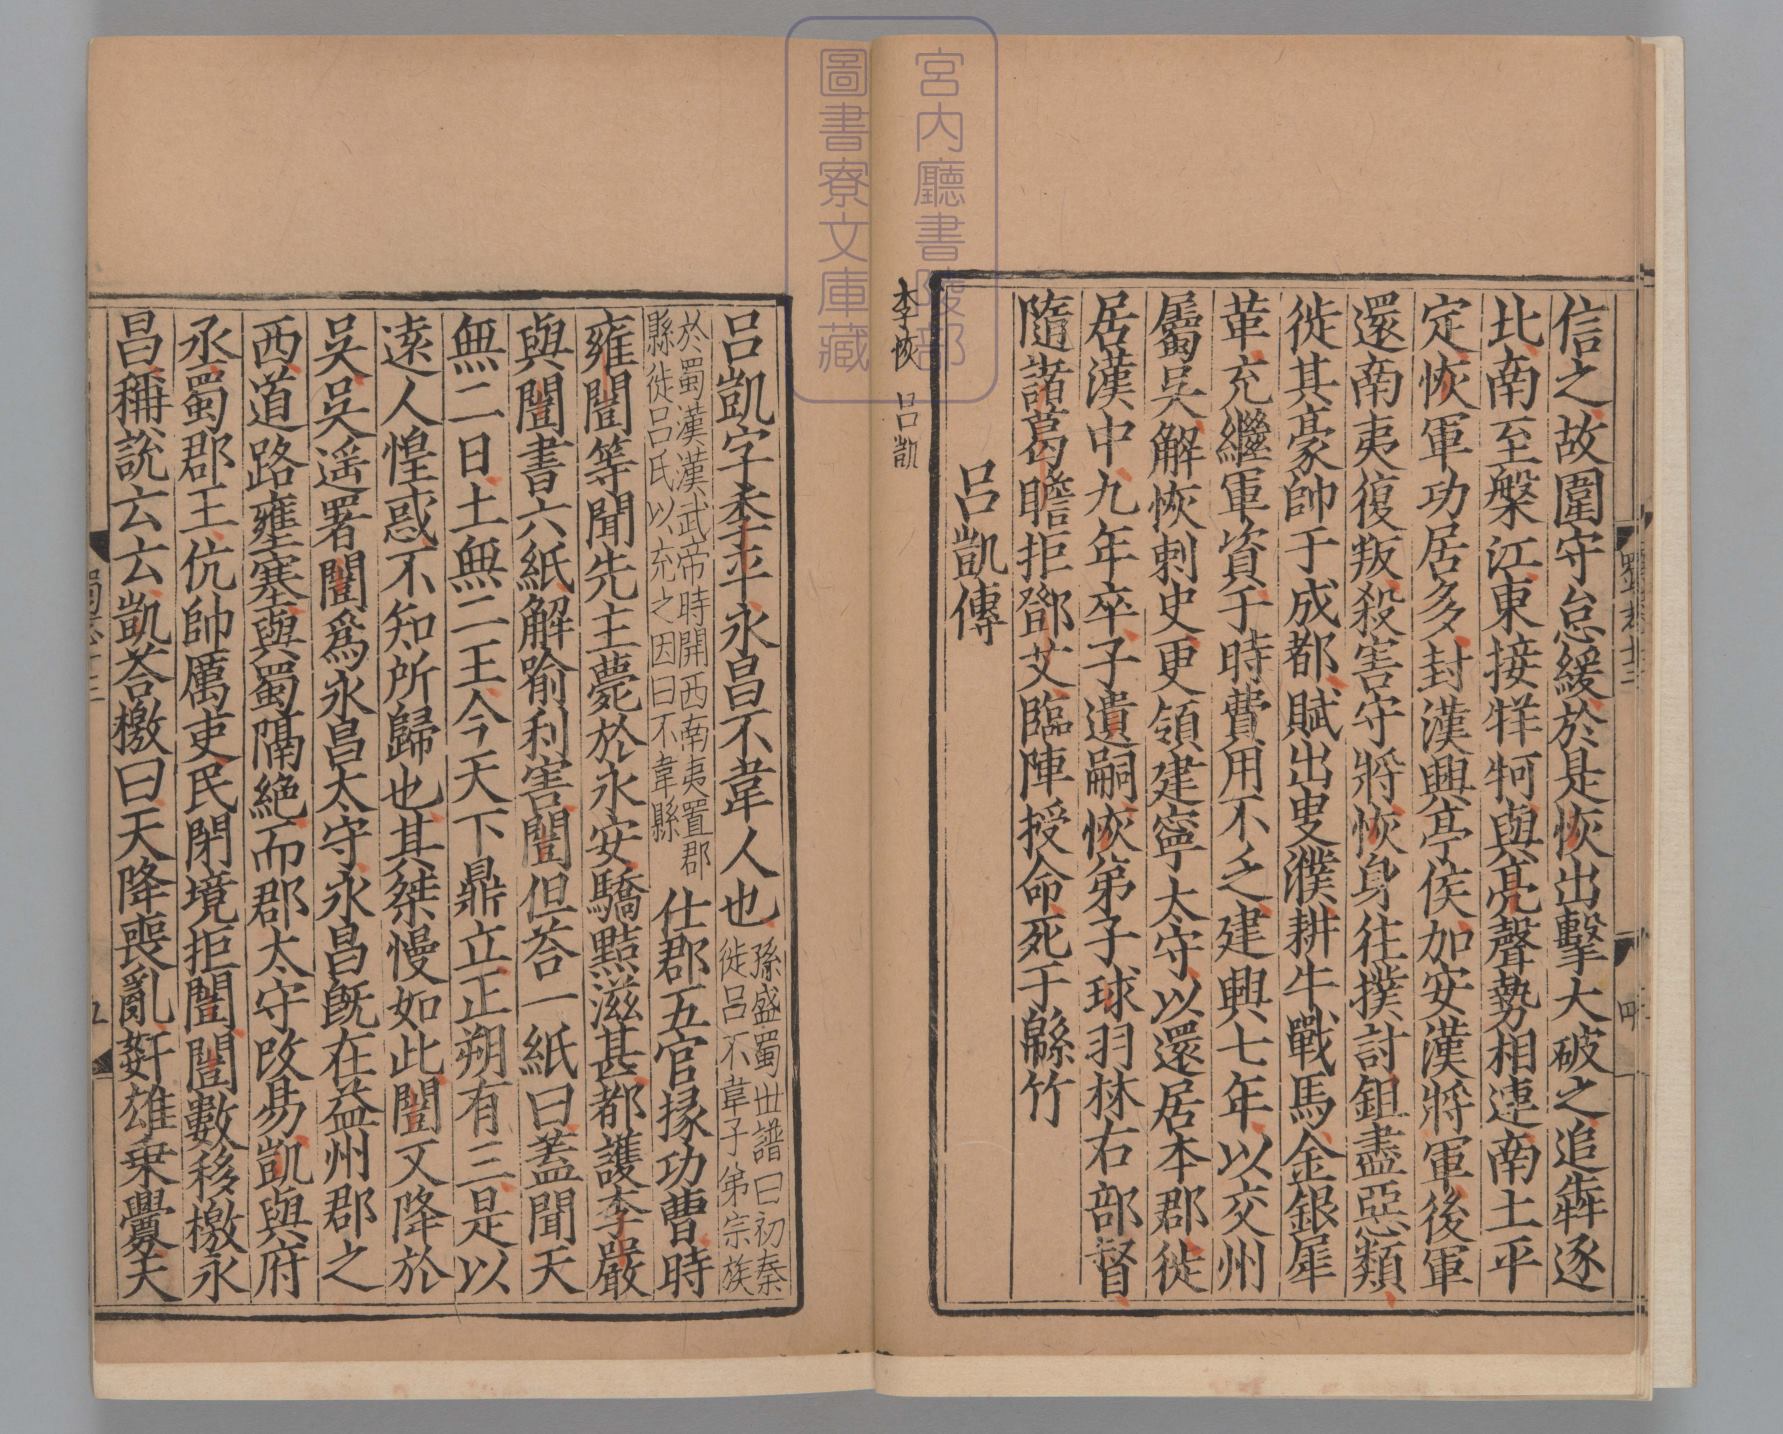 信之故圍守怠緩於是恢出擊大破之追犇逐
北南至槃江東接牂牁與亮聲勢相連南土平
定恢軍功居多封漢興亭侯加安漢將軍後軍
還南夷復叛殺害守將恢身往撲討鉏盡惡類
徙其豪帥于成都賦出叟濮耕牛戰馬金銀犀
革充繼軍資于時費用不乏建興七年以交州
屬吳解恢刺史更領建寧太守以還居本郡徙
居漢中九年卒子遺嗣恢弟子球羽林右部督
隨諸葛瞻拒鄧艾臨陣授命死于緜竹
呂凱傳
李恢 呂凱
呂凱字季平永昌不韋人也
孫盛蜀世譜曰初秦
徙呂不韋子弟宗族
於蜀漢漢武帝時開西南夷置郡
縣徙呂氏以充之因曰不韋縣
仕郡五官掾功曹時
雍闓等聞先主薨於永安驕黠滋甚都護李嚴
與闓書六紙解喻利害闓但荅一紙曰蓋聞天
無二日土無二王今天下鼎立正朔有三是以
遠人惶惑不知所歸也其桀慢如此闓又降於
吳吳遥署闓爲永昌太守永昌旣在益州郡之
西道路壅塞與蜀隔絶而郡太守改易凱與府
丞蜀郡王伉帥厲吏民閉境拒闓闓數移檄永
昌稱說云云凱荅檄曰天降喪亂姧雄乗釁天
宮内廳書陵部
圖書寮文庫藏